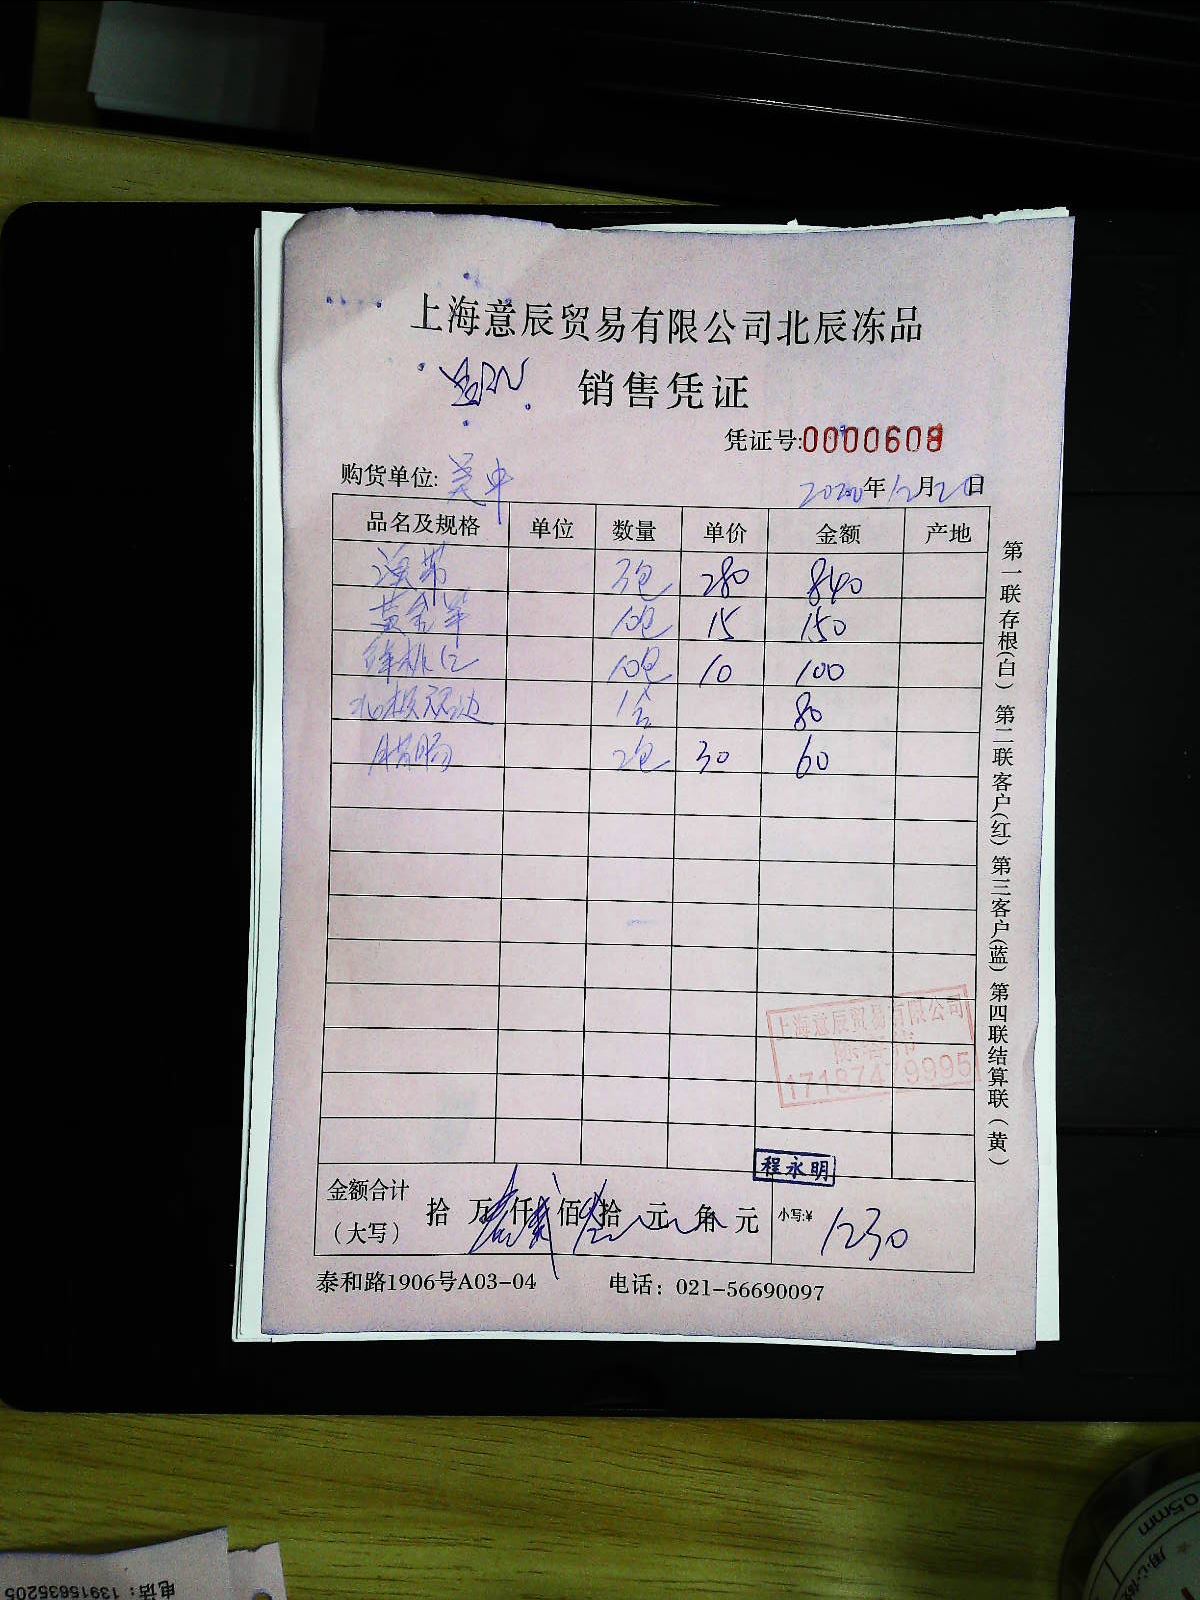 上海意辰贸易有限公司北辰冻品
销售凭证
凭证号:0000608
购货单位:
2020年12月20日
品名及规格 单位 数量 单价 金额 产地
海带 3包 280 840
黄金羊 10包 15 150
10包 10 100
1合 80
腊肠 2包 30 60
第一联存根(白) 第二联客户(红) 第三客户(蓝) 第四联结算联(黄)
上海意辰贸易有限公司
17187479995
程永明
金额合计
(大写) 拾 万壹仟贰佰叁拾 元 角 元 小写:¥ 1230
泰和路1906号A03-04 电话: 021-56690097
电话: 13915635205
0.5mm